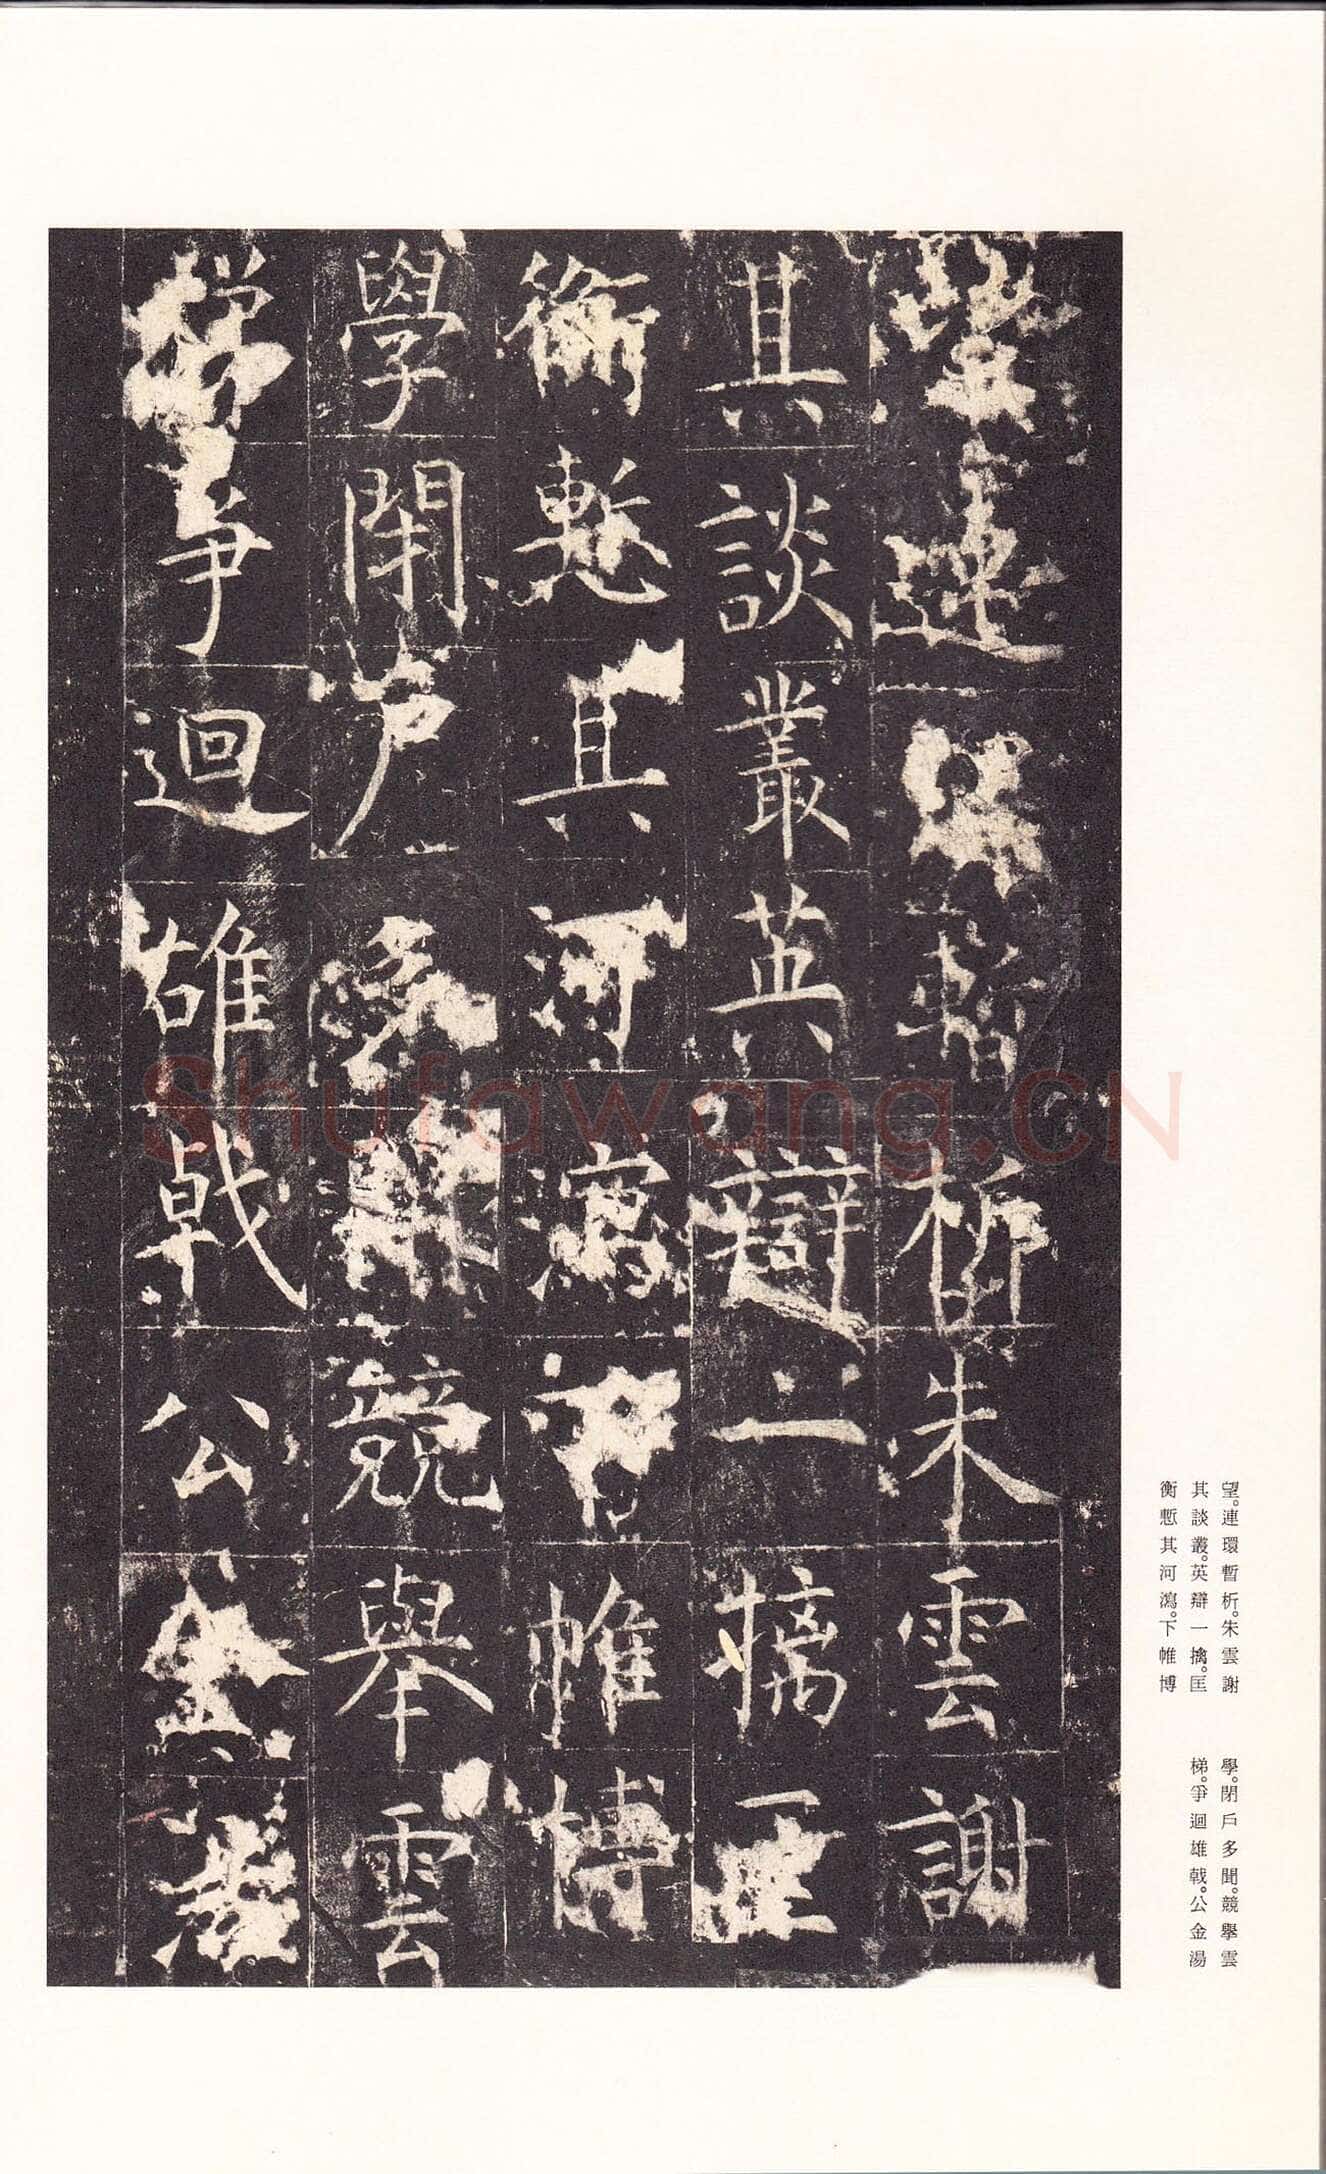 望連環暫析朱雲謝
其談叢英辯一摛匡
衡慙其河瀉下帷博
學閉戶多聞競舉雲
梯爭迴雄戟公金湯
望。連環暫析。朱雲謝
其談叢。英辯一擒。匡
衡慙其河瀉。下帷博
學。閉戶多聞。競擧雲
梯。爭迴雄戟。公金湯
Shufawang.CN